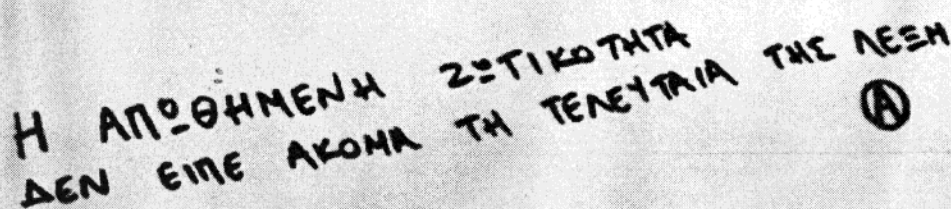 Η ΑΠΩΘΗΜΕΝΗ ΖΩΤΙΚΟΤΗΤΑ
ΔΕΝ ΕΙΠΕ ΑΚΟΜΑ ΤΗ ΤΕΛΕΥΤΑΙΑ ΤΗΣ ΛΕΞΗ
Ⓐ